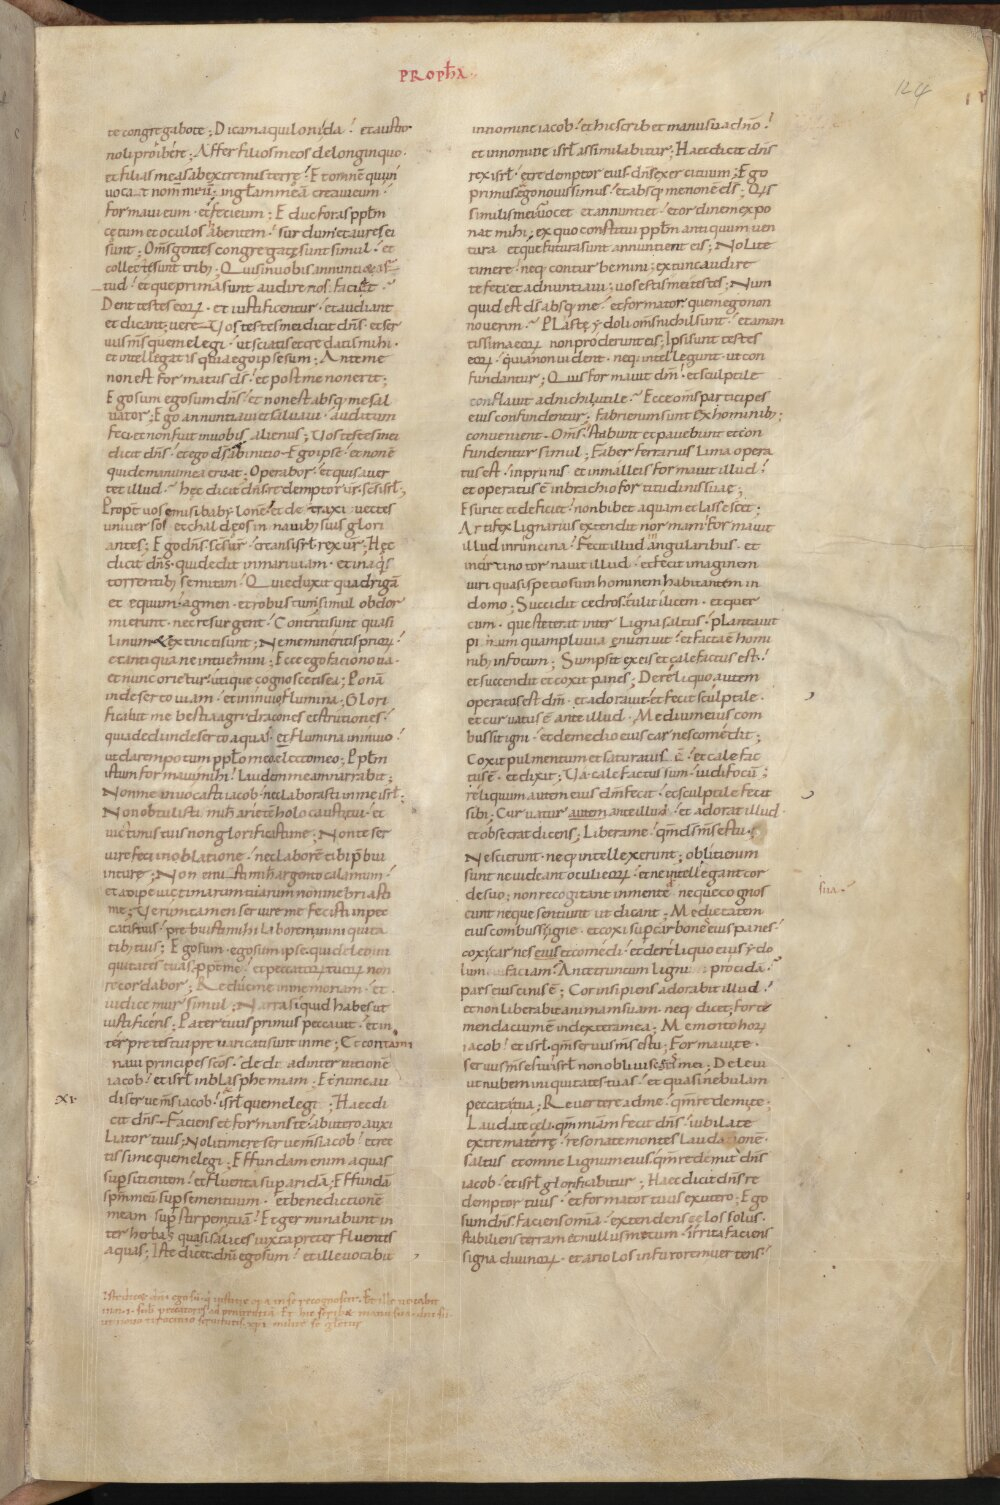 PROPHA
124
te congregabo te; Dicam aquiloni da! et austro
noli prohibere; Affer filios meos de longinquo.
et filias meas ab extremis terrę! Et omnē qui in
vocat nomē meū; in glā mea creavi eum!
formavi eum. et feci eum; Educ foras pplm
cęcum et oculos abentem! surdum et aures ei
sunt; Oms gentes congregatę sunt simul! et
collectę sunt trib; Quis in vobis annuntiet is
tud! et que prima sunt audire nos faciet.
Dent testes eorū. et iustificentur. et audiant
et dicant; vere. Vos testes mei dicit dns. et ser
vus ms quem elegi. ut sciatis et credatis mihi.
et intellegatis quia ego ipse sum; Ante me
non est formatus ds. et post me non erit;
Ego sum ego sum dns. et non est absq; me sal
vator; Ego annuntiavi et salvavi. auditum
feci et non fuit in vobis alienus; Vos testes mei
dicit dns. et ego ds ab initio. Ego ipse. et non ē
qui de manu mea eruat; Operabor. et quis aver
tet illud. hęc dicit dns redemptor vr. scs isrl;
Propt vos emisi babylonē. et detraxi vectes
universos. et chaldeos in navib; suis glori
antes; Ego dns. scs vr. creans isrl rex vr; Hęc
dicit dns. qui dedit in mari viam. et in aqis
torrentib; semitam. Qui eduxit quadrigā
et equum. agmen. et robustum; simul obdor
mierunt. nec resurgent. Contriti sunt quasi
linum & extincti sunt; Ne memineritis priorū.
et antiqua ne intuemini; Ecce ego facio nova.
et nunc orietur. utique cognoscetis ea; Ponā
in deserto viam. et in invio flumina; Glori
ficabit me bestia agri dracones et strutiones.
quia dedi in deserto aquas. et flumina in invio.
ut darem potum pplo meo electo meo; Pplm
istum formavi mihi. laudem meam narrabit;
Non me invocasti iacob. nec laborasti in me isrl;
Non obtulisti mih arietē holocausti tui. et
victimis tuis non glorificasti me; Non te ser
vire feci in oblatione. nec laborē tibi pbui
in ture; Non emisti mih argento calamum.
et adipe victimarum tuarum non inebriasti
me; Veruntamen servire me fecisti in pec
catis tuis. prebuisti mihi laborem in iniquita
tib; tuis; Ego sum. ego sum ipse. qui deleo ini
quitates tuas ppt me. et peccatorū tuorū non
recordabor; Reduc me in memoriam. et
iudicemur simul; Narra si quid habes ut
iustificeris; Pater tuus primus peccavit. et in
terpretes tui prevaricati sunt in me; Et contami
navi principes scos. dedi ad internitionē
iacob. et isrl in blasphemiam. Et nunc au
XI.
di serve ms iacob. isrl quem elegi; Haec di
cit dns. Faciens et formans te. ab utero auxi
liator tuus; Noli timere serve ms iacob. et rec
tissime quem elegi; Effundam enim aquas
sup sitientem. et fluenta sup aridā; Effundā
spm meū sup semen tuum. et benedictionē
meam sup stirpem tuā. Et germinabunt in
ter herbas quasi salices iuxta preterfluentes
aquas; Iste dicet dni ego sum. et ille vocabit
Iste dicet dni ego sū.
in nomine iacob. et hic scribet manu sua dno.
et in nomine isrl assimilabitur; Haec dicit dns
rex isrl. et redemptor eius. dns exercituum; Ego
primus ego novissimus. et absq; me non ē ds; Qis
similis mei vocet et annuntiet. et ordinem expo
nat mihi; ex quo constitui pplm antiquum ven
tura et que futura sunt annuntient eis; Nolite
timere. neq; conturbemini; ex tunc audire
te feci et adnuntiavi; vos estis mei testes; Num
quid est ds absq; me. et formator. quem ego non
noverim. Plastę ydoli oms nichil sunt. et aman
tissima eorū non proderunt eis; Ipsi sunt testes
eorū. quia non vident. neq; intellegunt. ut con
fundantur; Quis formavit dm. et sculptile
conflavit ad nichil utile. Ecce oms participes
eius confundentur; fabri enim sunt ex hominib;
convenient. oms. stabunt et pavebunt et con
fundentur simul; Faber ferrarius lima opera
tus est. in prunis et in malleis formavit illud.
et operatus ē in brachio fortitudinis suae;
Esuriet et deficiet. non bibet aquam et lassescet;
Artifex lignarius extendit normam. formavit
illud in runcina. Fecit illud in angularibus. et
in circino tornavit illud. et fecit imaginem
viri quasi speciosum hominem habitantem in
domo; Succidit cedros. tulit ilicem. et quer
cum. que steterat inter ligna saltus. plantavit
pinum quam pluvia enutrivit. et facta ē homi
nib; in focum; Sumpsit ex eis et calefactus est.
et succendit et coxit panes; De reliquo autem
operatus est dm. et adoravit. et fecit sculptile.
et curvatus ē ante illud. Medium eius com
bussit igni. et de medio eius carnes comedit;
Coxit pulmentum et saturatus ē. et calefac
tus ē. et dixit; Va calefactus sum. vidi focū;
reliquum autem eius dm fecit. et sculptile fecit
sibi. Curvatur autem ante illud. et adorat illud.
et obsecrat dicens; Libera me. qm ds ms es tu;
Nescierunt. neq; intellexerunt; obliti enim
sunt ne videant oculi eorū. et ne intellegant cor
de suo; non recogitant in mente. neque cognos
sua.
cunt neque sentiunt ut dicant; Medietatem
eius combussi igne. et coxi sup carbones eius panes.
coxi carnes eius et comedi. et de reliquo eius ydo
lum faciam. Ante truncum ligni procidā.
pars eius cinis ē; Cor insipiens adorabit illud.
et non liberabit animam suam. neq; dicet; forte
mendacium ē in dextera mea; Memento horū
iacob. et isrl. qm servus ms es tu; Formavi te.
servus ms es tu isrl non obliviscaris mei; Delevi
ut nubem iniquitates tuas. et quasi nebulam
peccata tua; Revertere ad me. qm redemi te.
Laudate celi. qm misericordiam fecit dns. iubilate
extrema terrę. resonate montes laudationē.
saltus et omne lignum eius. qm redemit dns
iacob. et isrl glorificabitur; Haec dicit dns re
demptor tuus. et formator tuus ex utero; Ego
sum dns. faciens omia. extendens celos solus.
stabiliens terram et nullus mecum. irrita faciens
signa divinorū. et ariolos in furorem vertens.